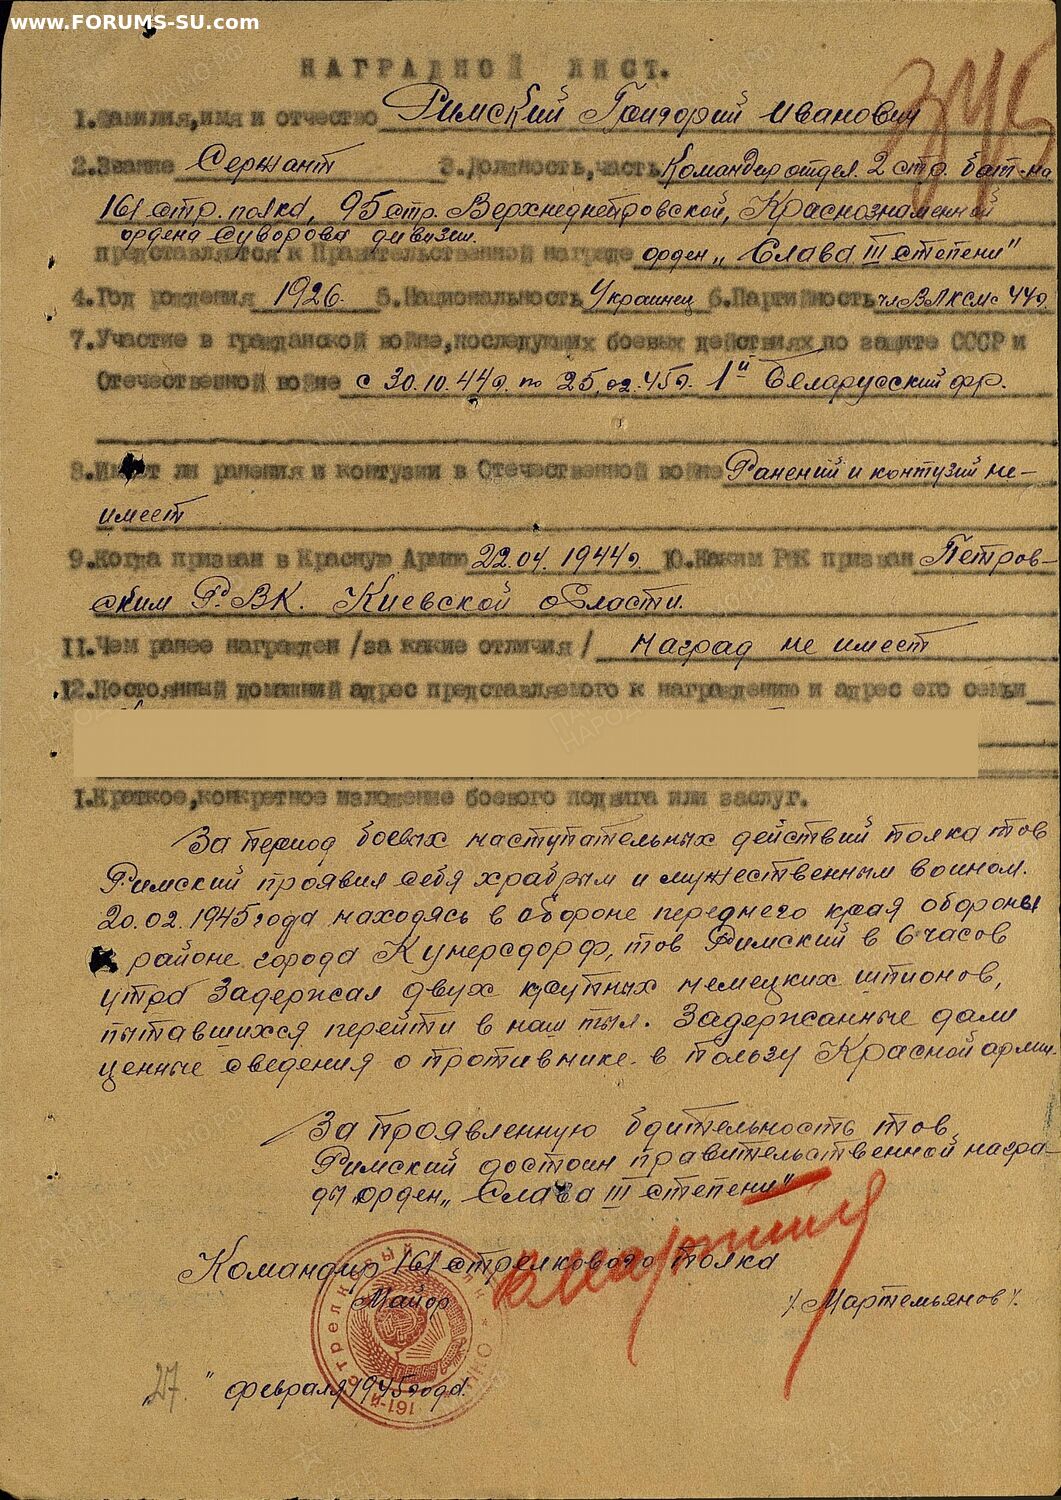 www.FORUMS-SU.com
НАГРАДНОЙ ЛИСТ.
1.Фамилия,имя и отчество Римский Григорий Иванович
2.Звание Сержант 3.Должность,часть Командир отдел. 2 стр. бат-на
161 стр. полка, 95 стр. Верхнеднепровской, Краснознаменной
ордена Суворова дивизии.
представляется к Правительственной награде орден „Слава III степени"
4.Год рождения 1926. 5.Национальность Украинец 6.Партийность чл ВЛКСМ с 44г.
7.Участие в гражданской войне,последующих боевых действиях по защите СССР и
Отечественной войне с 30.10.44г. по 25.02.45г. 1й Беларусский фр.
8.Имеет ли ранения и контузии в Отечественной войне Ранений и контузий не-
имеет
9.Когда призван в Красную Армию 22.04.1944г. 10.Каким РВК призван Петров-
ским РВК. Киевской области.
11.Чем ранее награжден /за какие отличия/ наград не имеет
12.Постоянный домашний адрес представляемого к награждению и адрес его семьи
1.Краткое,конкретное изложение боевого подвига или заслуг.
За период боевых наступательных действий полка тов
Римский проявил себя храбрым и мужественным воином.
20.02.1945 года находясь в обороне переднего края обороны
в районе города Кунерсдорф, тов Римский в 6 часов
утра задержал двух крупных немецких шпионов,
пытавшихся перейти в наш тыл. Задержанные дали
ценные сведения о противнике в пользу Красной армии.
За проявленную бдительность тов.
Римский достоин правительственной награ-
ды орден „Слава III степени"
Командир 161 стрелкового полка
Майор /Мартемьянов/.
„27" февраля 1945 года.